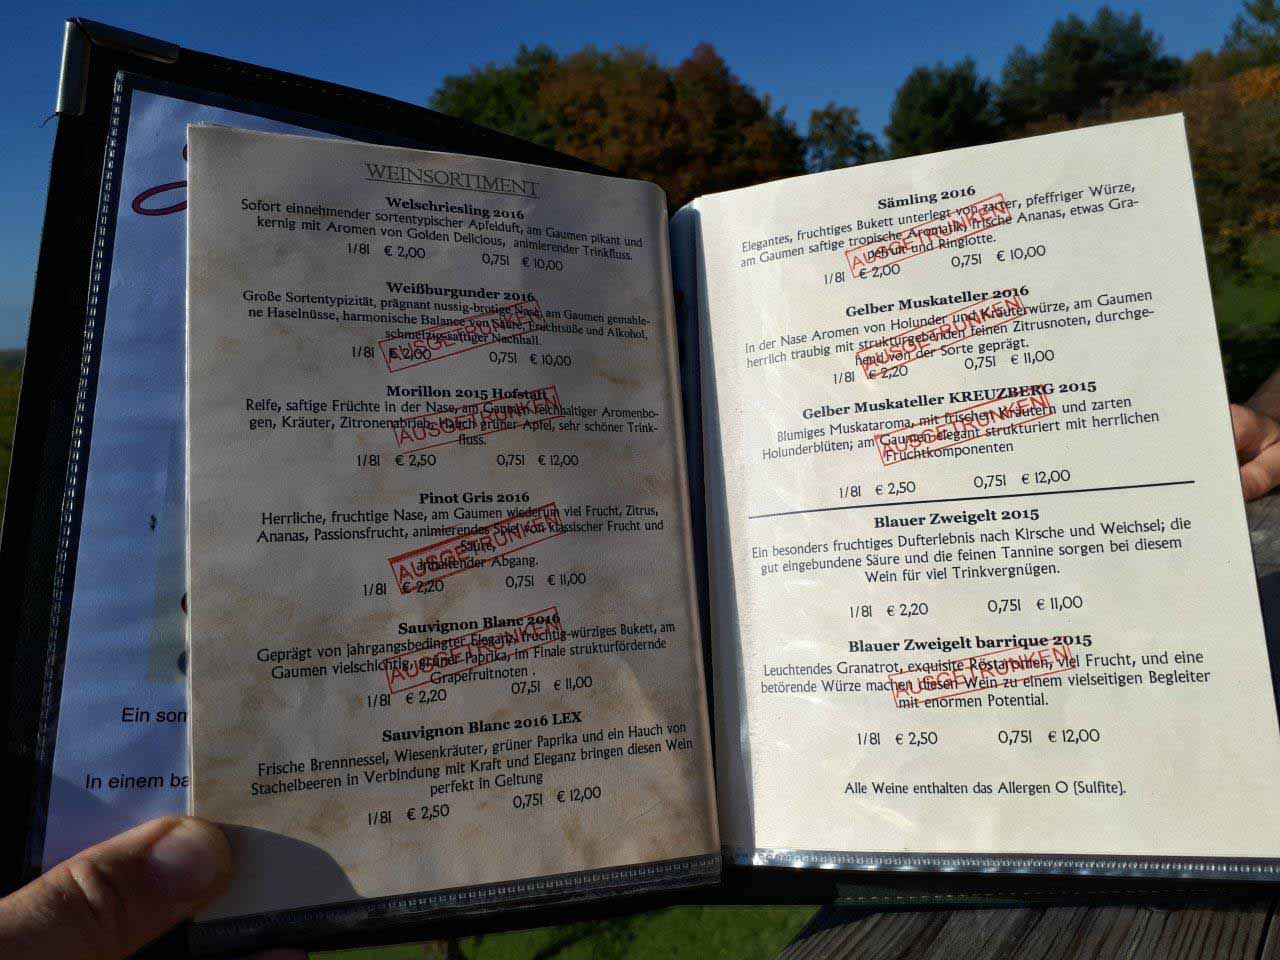 WEINSORTIMENT
Welschriesling 2016
Sofort einnehmender sortentypischer Apfelduft, am Gaumen pikant und
kernig mit Aromen von Golden Delicious, animierender Trinkfluss.
1/8l € 2,00 0,75l € 10,00
Weißburgunder 2016
Große Sortentypizität, prägnant nussig-brotige Nase, am Gaumen gemahle-
ne Haselnüsse, harmonische Balance von Säure, Fruchtsüße und Alkohol,
schmelzig-saftiger Nachhall.
AUSGETRUNKEN
1/8l € 2,00 0,75l € 10,00
Morillon 2015 Hofstatt
Reife, saftige Früchte in der Nase, am Gaumen reichhaltiger Aromenbo-
gen, Kräuter, Zitronenabrieb, Hauch grüner Apfel, sehr schöner Trink-
fluss.
AUSGETRUNKEN
1/8l € 2,50 0,75l € 12,00
Pinot Gris 2016
Herrliche, fruchtige Nase, am Gaumen wiederum viel Frucht, Zitrus,
Ananas, Passionsfrucht, animierendes Spiel von klassischer Frucht und
Säure,
anhaltender Abgang.
AUSGETRUNKEN
1/8l € 2,20 0,75l € 11,00
Sauvignon Blanc 2016
Geprägt von jahrgangsbedingter Eleganz, fruchtig-würziges Bukett, am
Gaumen vielschichtig, grüner Paprika, im Finale strukturfördernde
Grapefruitnoten .
AUSGETRUNKEN
1/8l € 2,20 07,5l € 11,00
Sauvignon Blanc 2016 LEX
Frische Brennnessel, Wiesenkräuter, grüner Paprika und ein Hauch von
Stachelbeeren in Verbindung mit Kraft und Eleganz bringen diesen Wein
perfekt in Geltung
1/8l € 2,50 0,75l € 12,00
Ein som
In einem ba
Sämling 2016
Elegantes, fruchtiges Bukett unterlegt von zarter, pfeffriger Würze,
am Gaumen saftige tropische Aromatik, frische Ananas, etwas Gra-
pefruit und Ringlotte.
AUSGETRUNKEN
1/8l € 2,00 0,75l € 10,00
Gelber Muskateller 2016
In der Nase Aromen von Holunder und Kräuterwürze, am Gaumen
herrlich traubig mit strukturgebenden feinen Zitrusnoten, durchge-
hend von der Sorte geprägt.
AUSGETRUNKEN
1/8l € 2,20 0,75l € 11,00
Gelber Muskateller KREUZBERG 2015
Blumiges Muskataroma, mit frischen Kräutern und zarten
Holunderblüten; am Gaumen elegant strukturiert mit herrlichen
Fruchtkomponenten
AUSGETRUNKEN
1/8l € 2,50 0,75l € 12,00
Blauer Zweigelt 2015
Ein besonders fruchtiges Dufterlebnis nach Kirsche und Weichsel; die
gut eingebundene Säure und die feinen Tannine sorgen bei diesem
Wein für viel Trinkvergnügen.
1/8l € 2,20 0,75l € 11,00
Blauer Zweigelt barrique 2015
Leuchtendes Granatrot, exquisite Röstaromen, viel Frucht, und eine
betörende Würze machen diesen Wein zu einem vielseitigen Begleiter
mit enormen Potential.
AUSGETRUNKEN
1/8l € 2,50 0,75l € 12,00
Alle Weine enthalten das Allergen O (Sulfite).